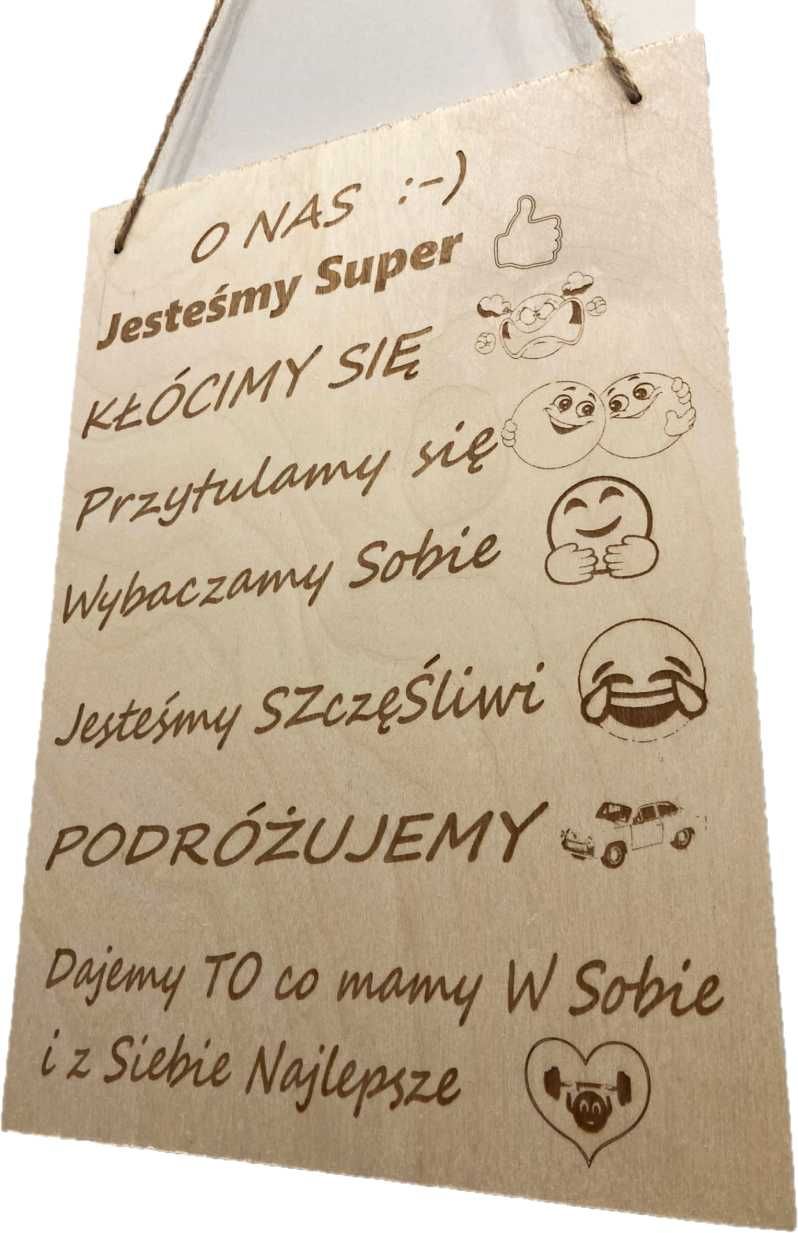 O NAS :-)
Jesteśmy Super
KŁÓCIMY SIĘ
Przytulamy się
Wybaczamy Sobie
Jesteśmy SZczęŚliwi
PODRÓŻUJEMY
Dajemy TO co mamy W Sobie
i z Siebie Najlepsze